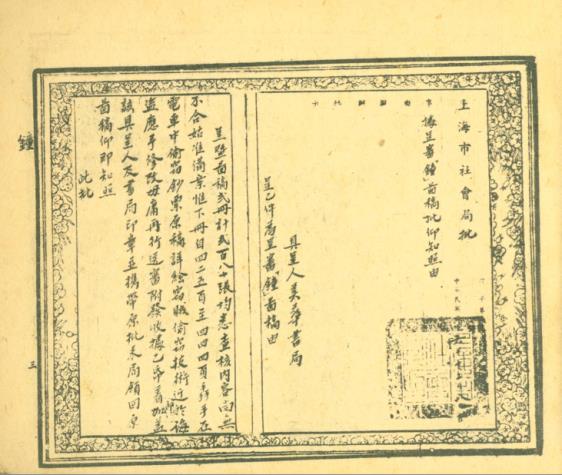 上海市社會局批
據呈審「鐘」畫稿批仰知照由
具呈人美華書局
呈乙件為呈審「鐘」畫稿由
呈暨畫稿弍冊計弍百八張均悉查核內容尚無
不合始准備案惟下冊自四二五頁至四四四頁
電車中偷竊鈔票原稿詳繪竊賊偷竊技術近於誨
盜應予修改毋庸再行送審附發收據乙帋着加蓋
該具呈人及書局印章並攜帶原批來局領回原
畫稿仰即知照
此批
鐘
三